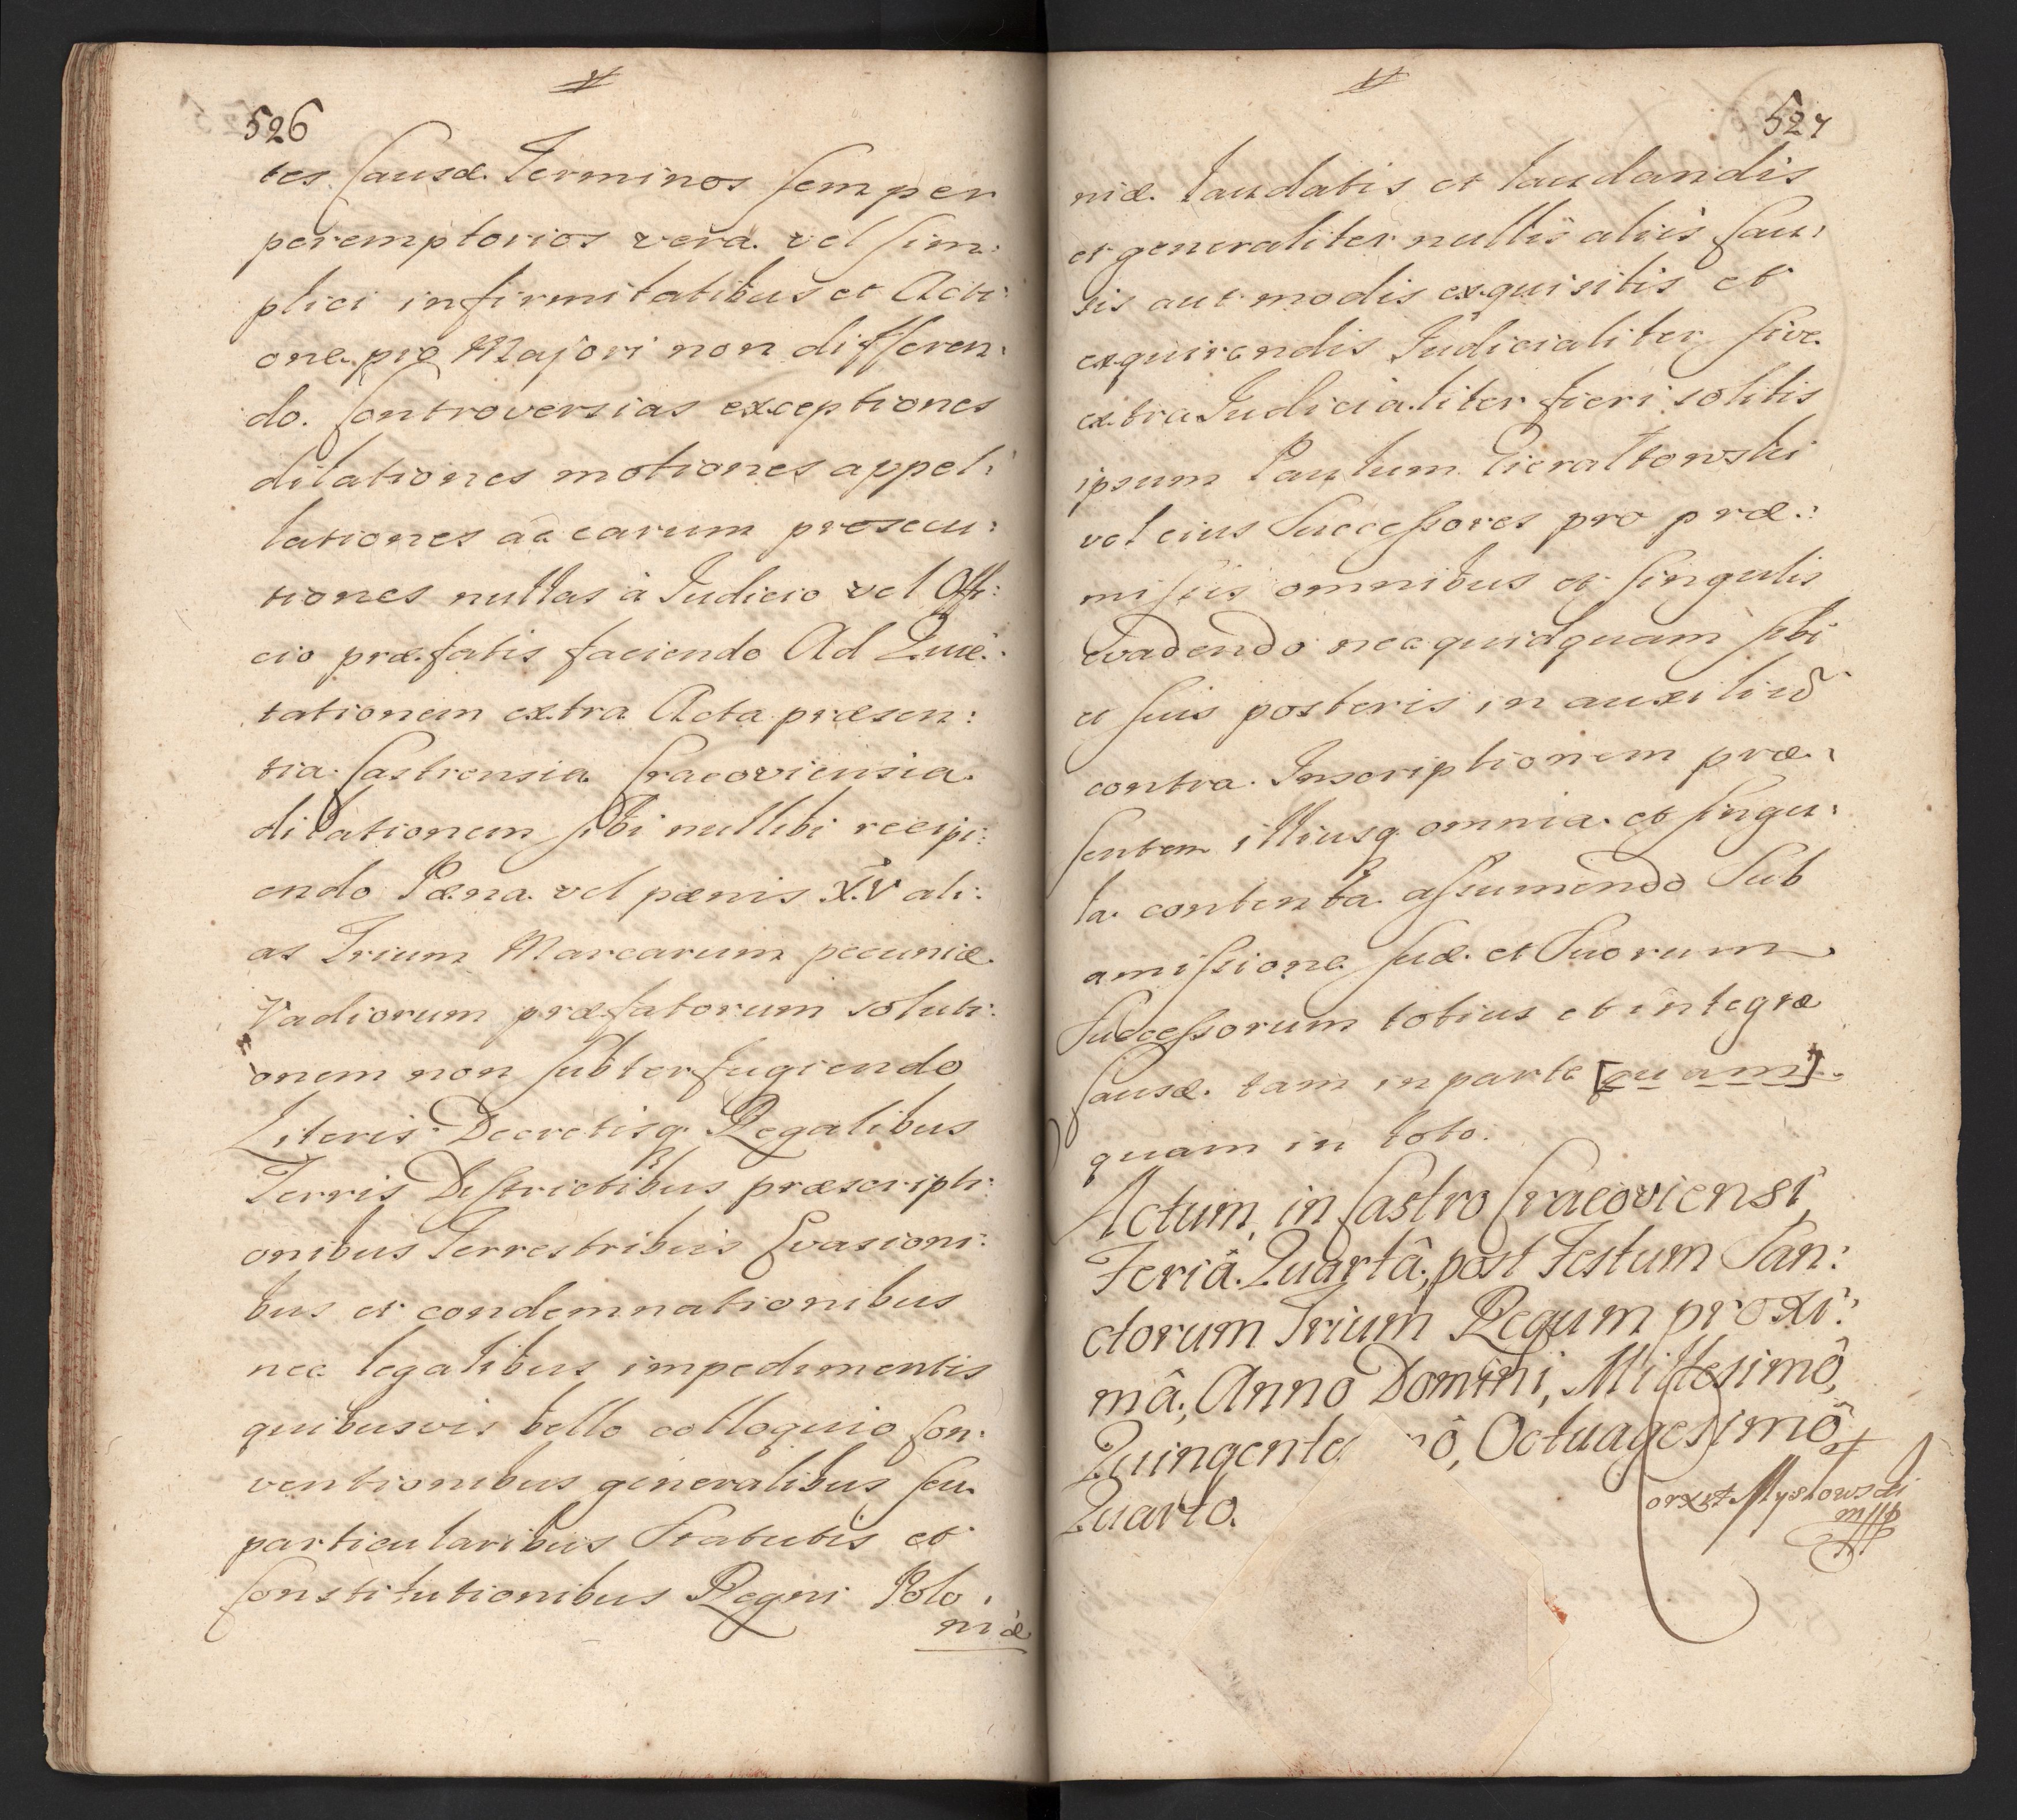 526
tes Causæ Terminos semper
peremptorios vera vel sim:
plici infirmitatibus et Acti:
one pro Majori non differen:
do. Controversias exceptiones
dilationes motiones appel:
lationes ac earum prosecu:
tiones nullas à Judicio vel Offi:
cio præfatis faciendo Ad Quie:
tationem extra Acta præsen:
tia Castrensia Cracoviensia
dilationem sibi nullibi recipi:
endo Pæna vel pænis X.V ali:
as Trium Marcarum pecuniæ
Vadiorum præfatorum soluti:
onem non subterfugiendo
Literis Decretisq Regalibus
Terris Districtibus præscripti:
onibus Terrestribus Evasioni:
bus et condemnationibus
nec legalibus impedimentis
quibusvis bello colloquio Con:
ventionibus generalibus seu
particularibus Statutis et
Constitutionibus Regni Polo
niæ
527
niæ laudatis et laudandis
et generaliter nullis aliis Cau:
sis aut modis exquisitis et
exquirendis Judicialiter sive
extra Judicialiter fieri solitis
ipsum Paulum Pieraltowski
vel eius Successores pro præ:
missis omnibus et singulis
evadendo nec quidquam sibi
et suis posteris in auxiliũ
contra Inscriptionem præ:
sentem illiusq omnia et singu:
la contenta assumendo Sub
amissione suæ et Suorum
Successorum totius et integræ
Causæ tam in parte [quam]
quam in toto.
Actum, in Castro Cracoviensi,
Feriâ Quartâ, post Festum San:
ctorum Trium Regum proxi:
mâ, Anno Domini, Millesimô,
Quingente nô, Octuagesimô
Quarto.